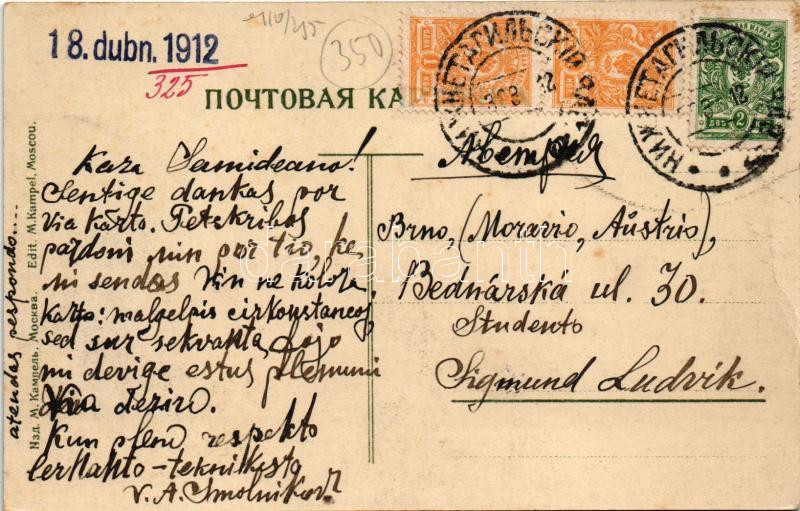 18. dubn. 1912
325
350
ПОЧТОВАЯ КА
НИЖНЕТАГИЛЬСКІЙ
НИЖНЕТАГИЛЬСКІЙ
ДВѢ 2
Kara Samideano!
Sentige dankas por
via karto. Petskribas
pardoni min por tio, ke
mi sendas Vin ne kolora
karto: malhelpis cirkonstancoj,
sed sur sekvanta fojo
mi devige estus plenumi
Via deziro.
Kun plena respekto
lernanto-teknikisto
V. A. Smolnikov
atendas respondo....
Изд. М. Кампель, Москва. Edit. M. Kampel, Moscou.
Brno, (Moravio, Aŭstrio),
Bednárská ul. 30.
Studento
Sigmund Ludvik.
darabanth